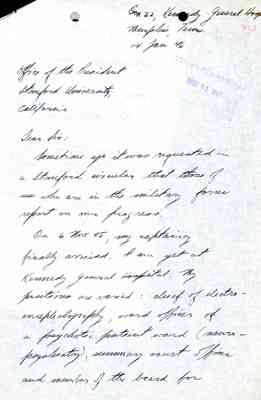 Kennedy General Hosp
Memphis, Tenn
14 Jan 46
Office of the President
Stanford University,
California
Dear Sir:
Sometime ago it was requested in
a Stanford circular that those of
us who are in the military forces
report on our progress.
On 6 Nov 45, my captaincy
finally arrived. I am yet at
Kennedy General Hospital. My
functions are varied: chief of electro-
encephalography, ward officer of
a psychotic patient ward (neuro-
psychiatry), summary court officer
and member of the board for